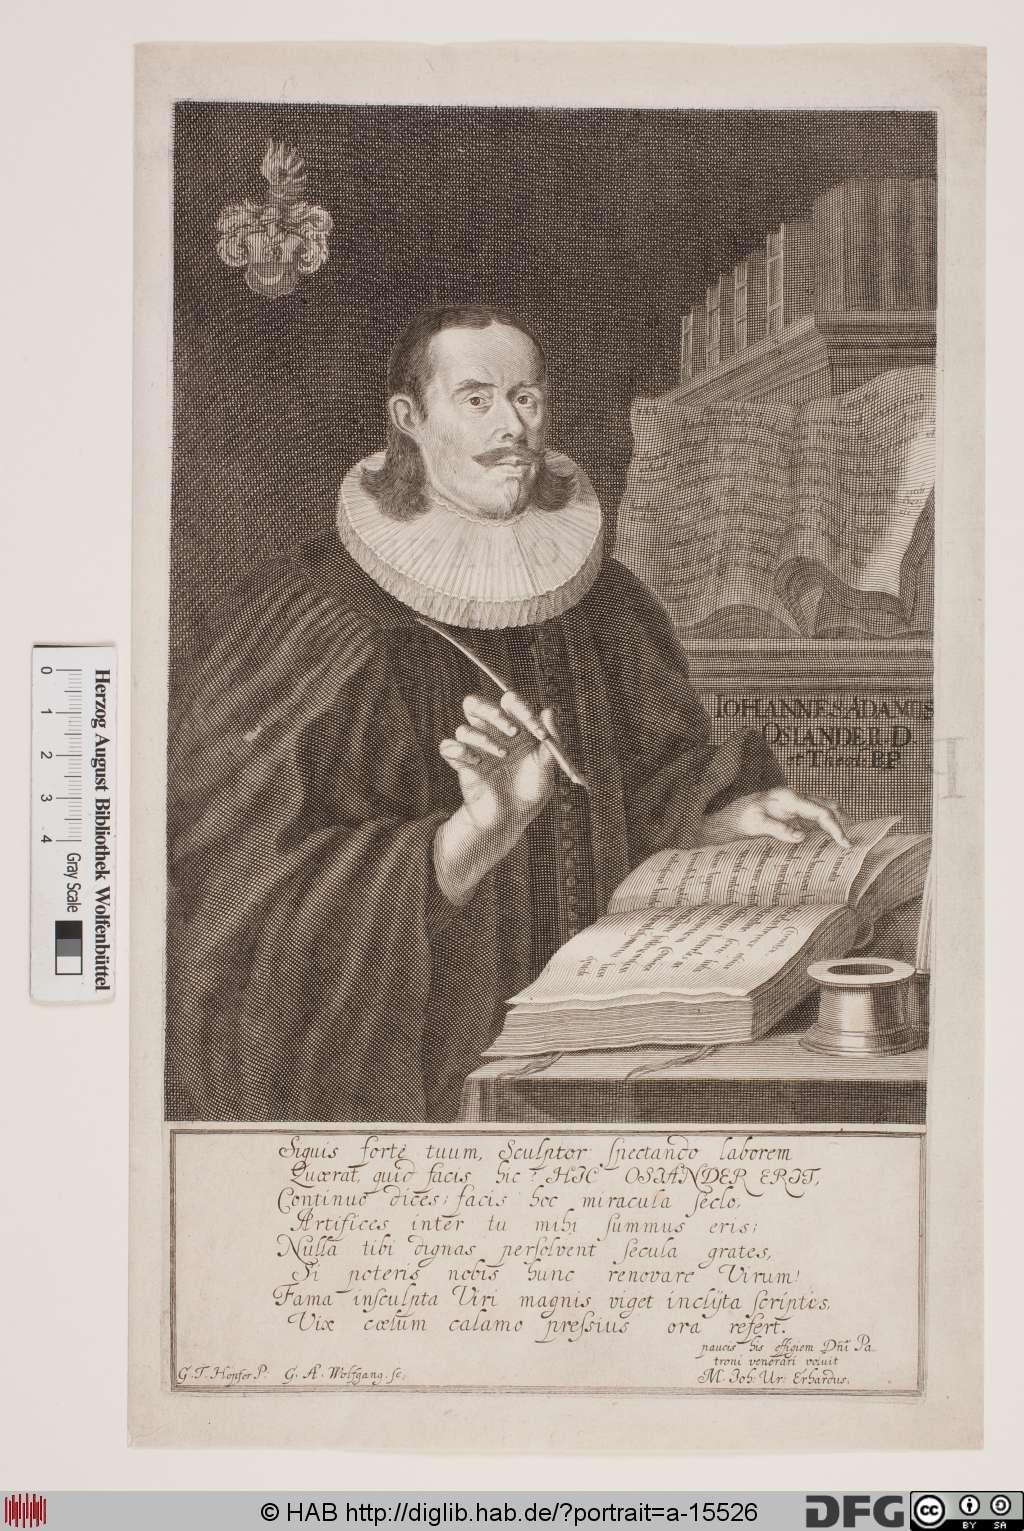 IOHANNES ADAMUS
OSIANDER. D
et Theol: P.P.
Siquis forte tuum, Sculptor spectando laborem
Quærat, quid facis hic? HIC OSIANDER ERIT,
Continuo dices; facis hoc miracula seclo,
Artifices inter tu mihi summus eris;
Nulla tibi dignas persolvent secula grates,
Si poteris nobis hunc renovare Virum!
Fama insculpta Viri magnis viget inclyta scriptis,
Vix cœlum calamo pressius ora refert.
paucis his effigiem Dñi Pa-
troni venerari voluit
M. Joh: Ur: Erhardus.
G. T. Hopfer P. G. Æ. Wolfgang. sc.
0 1 2 3 4
Gray Scale
Herzog August Bibliothek Wolfenbüttel
© HAB http://diglib.hab.de/?portrait=a-15526
DFG
cc BY SA